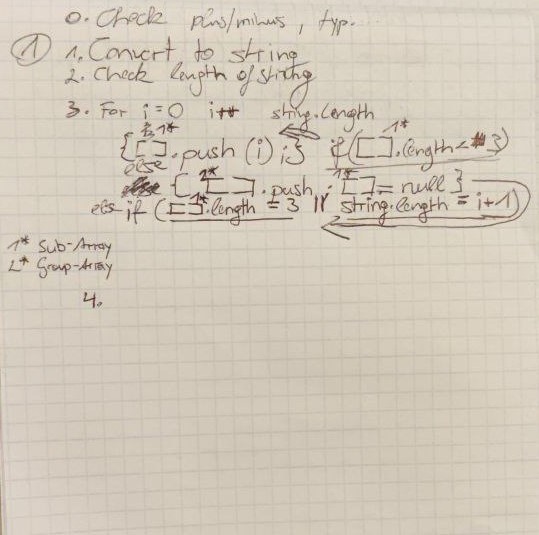 0. Check plus/minus, typ.
① 1. Convert to string
2. Check length of string
3. For i=0 i++ string.length
{[ ]1*.push (i) ;} if([ ]1*.length < 3)
else
{[ 2* ].push ; [ ]1* = null }
else if ([ ]1*.length = 3 || string.length = i+1)
1* Sub-Array
2* Group-Array
4.